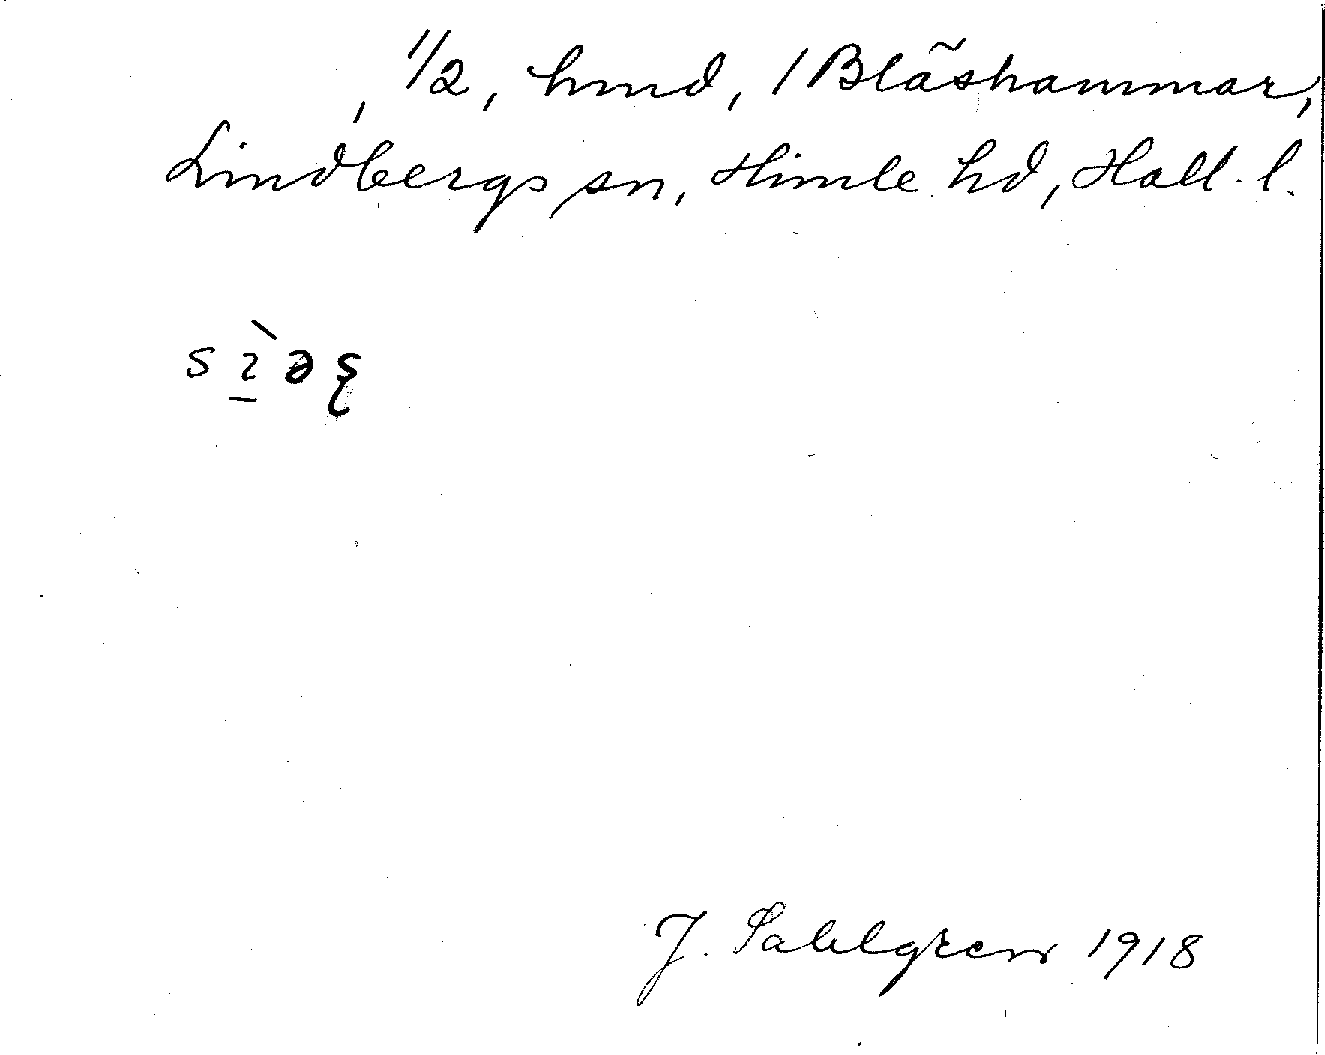 , 1/2, hmd, 1 Blåshammar,
Lindbergs sn, Himle hd, Hall. l.
sɪ̠̀əʂ
J. Sahlgren 1918